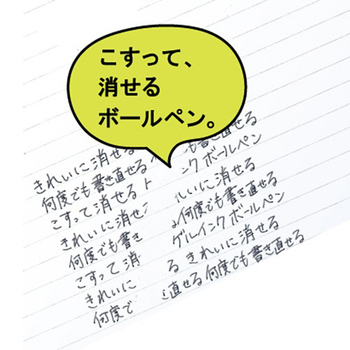 こすって、
消せる
ボールペン。
きれいに消せる
も書き直せる
何度でも書き直せる
ンクボールペン
こすって消せる
いに消せる
きれいに消せ
何度でも書き直せる
何度でも書き
ゲルインクボールペン
こすって消
る きれいに消せる
きれいに
直せる何度でも書き直せる
何度で